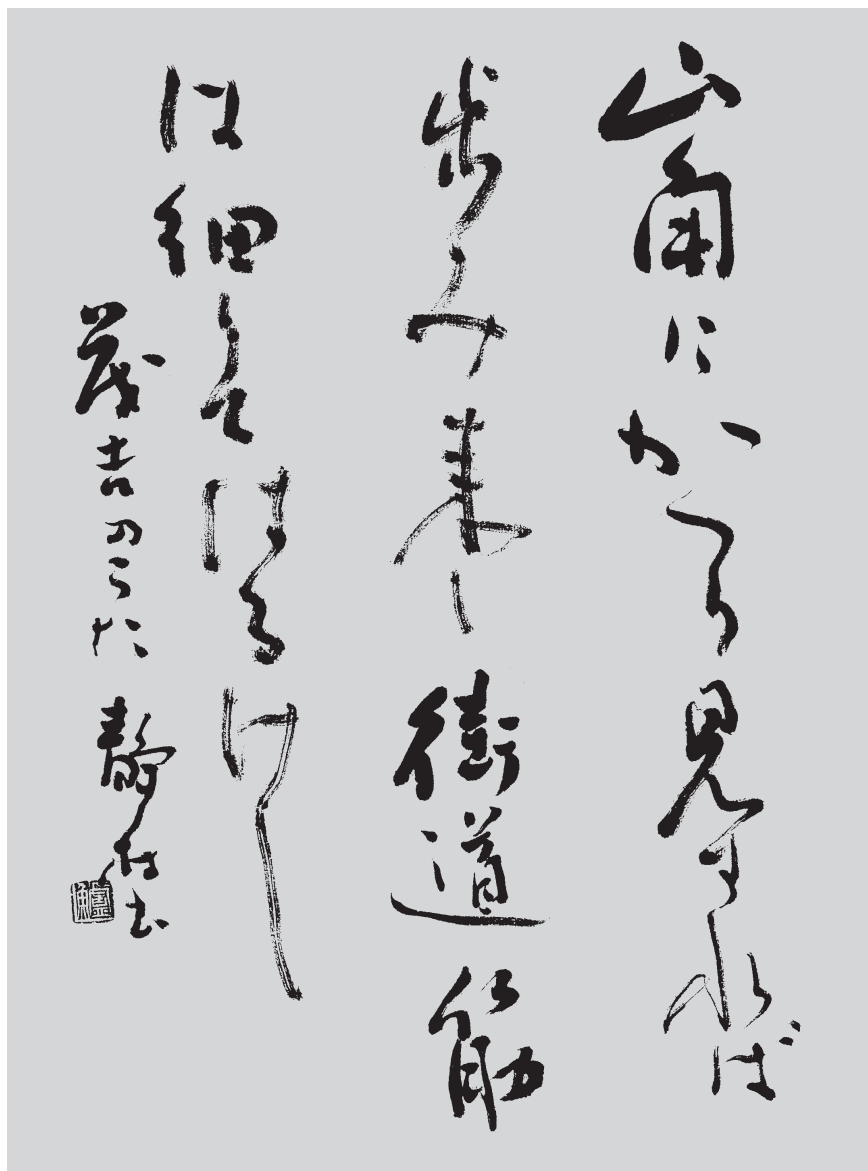 山角にかへり見すれば
歩み来し街道筋
は細りてはるけし
茂吉のうた 静 書